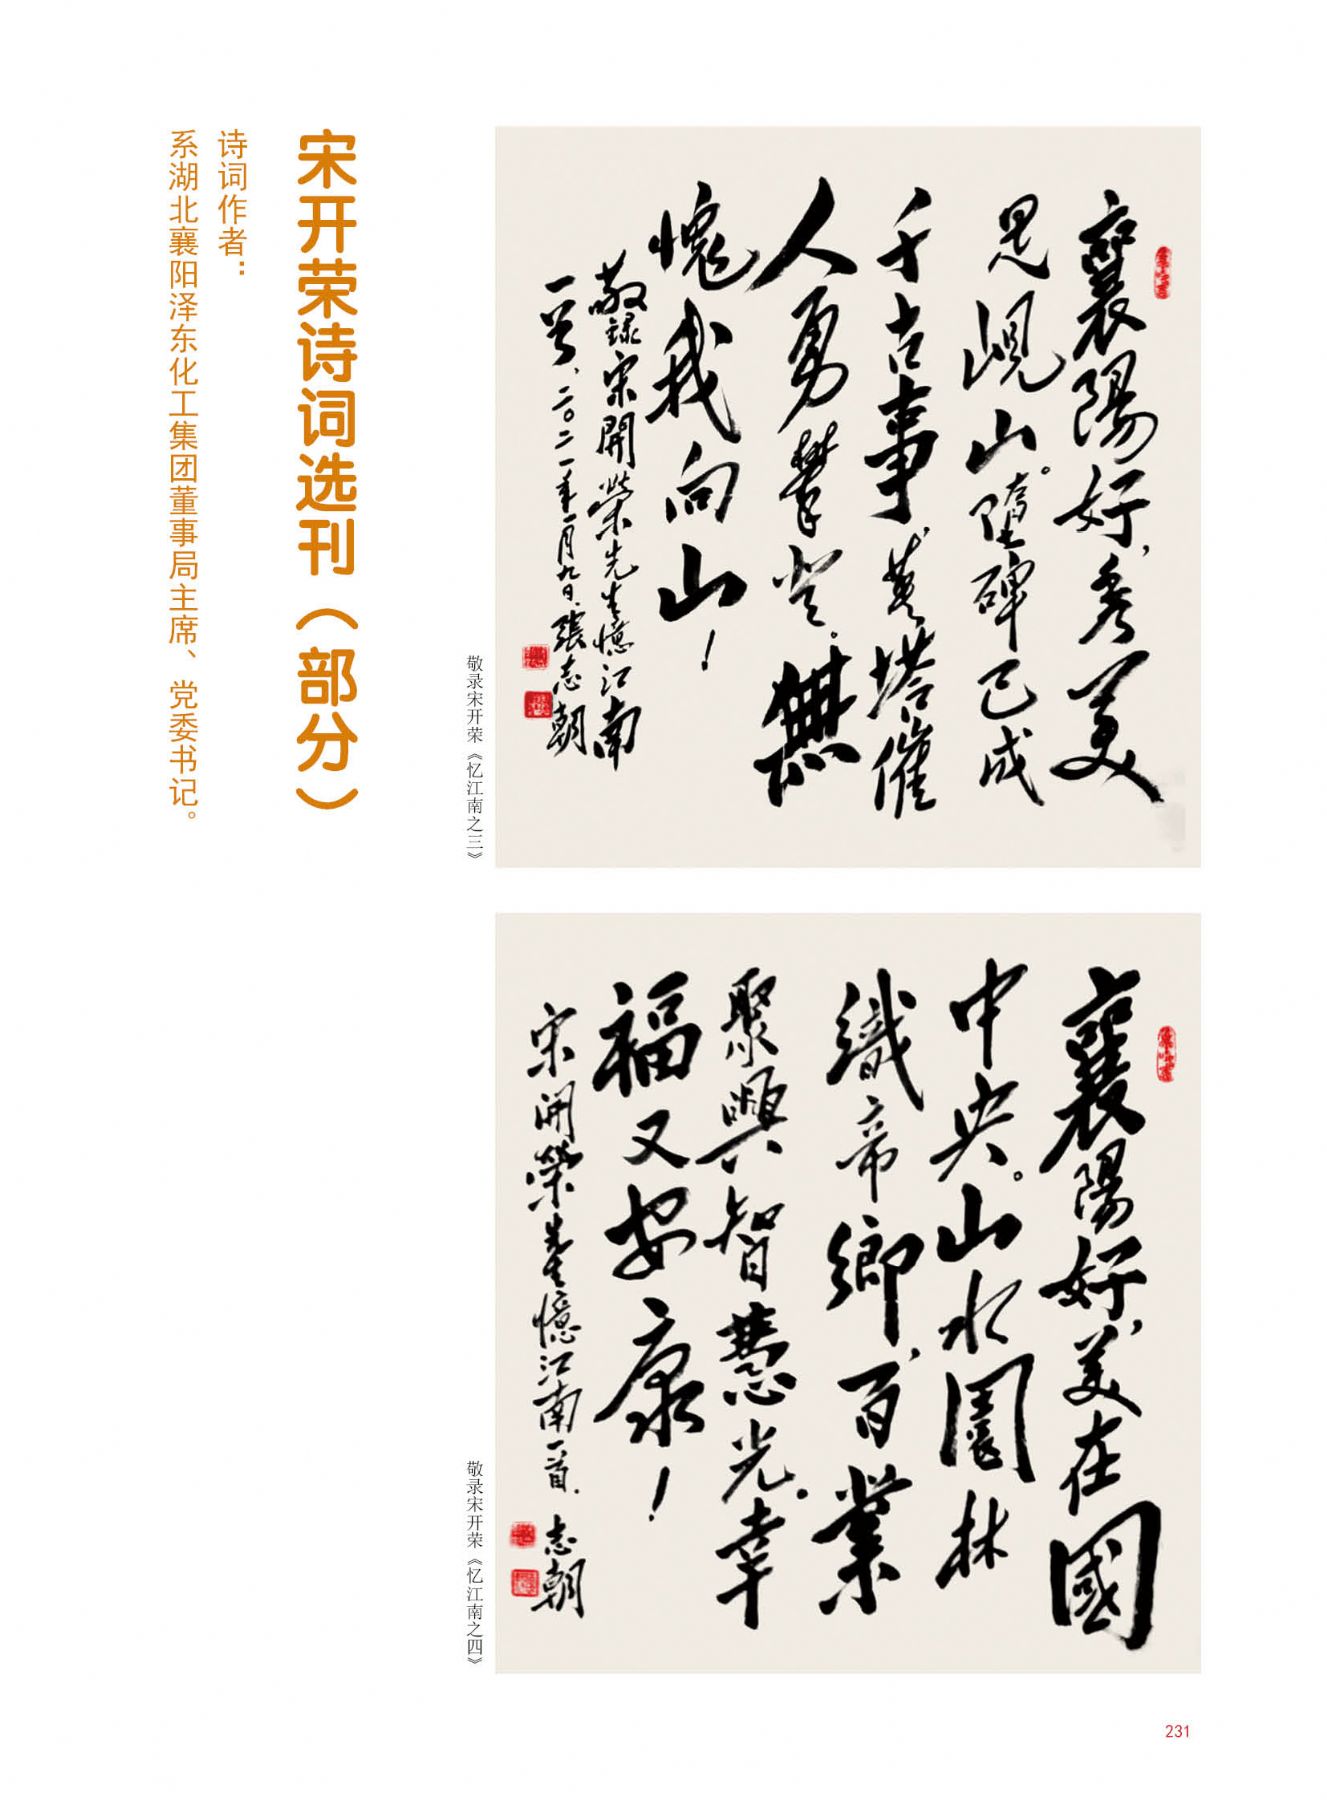 宋开荣诗词选刊（部分）
诗词作者：
系湖北襄阳泽东化工集团董事局主席、党委书记。
襄陽好,秀美
是峴山。墮碑已成
千古事,英塔催
人勇攀登.無
愧我向山！
敬録宋開榮先生憶江南
一首、二〇二一年一月九日.張志朝
敬录宋开荣《忆江南之三》
襄陽好,美在國
中央。山水園林
織帝鄉,百業
聚興智慧光.幸
福又安康！
宋開榮先生憶江南一首.志朝
敬录宋开荣《忆江南之四》
231